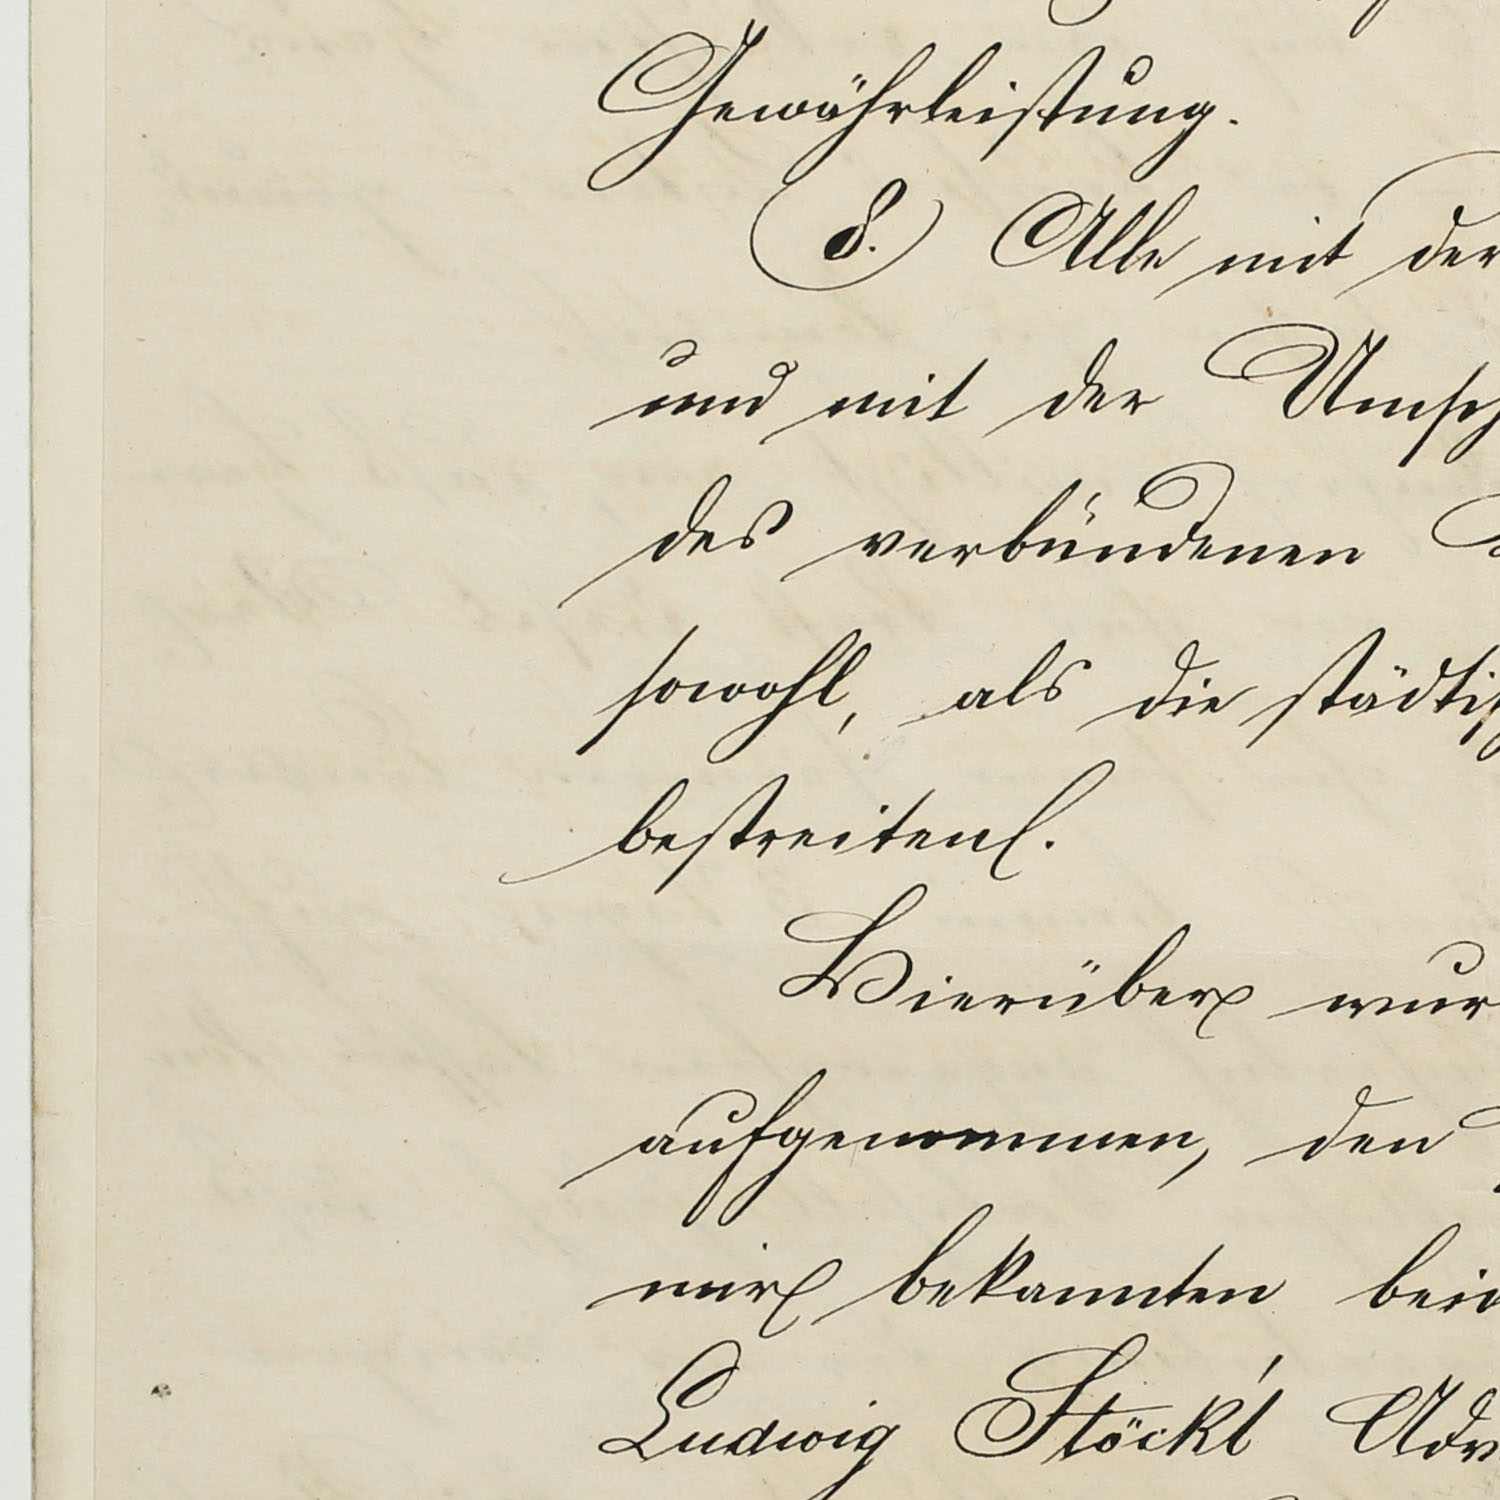 Gewährleistung.
8.) Alle mit der
und mit der Umsch
des verbündenen
sowohl, als die städtisch
bestreiten.
Hierüber wur
aufgenommen, den
mir bekannten beid
Ludwig Stöckl Adv